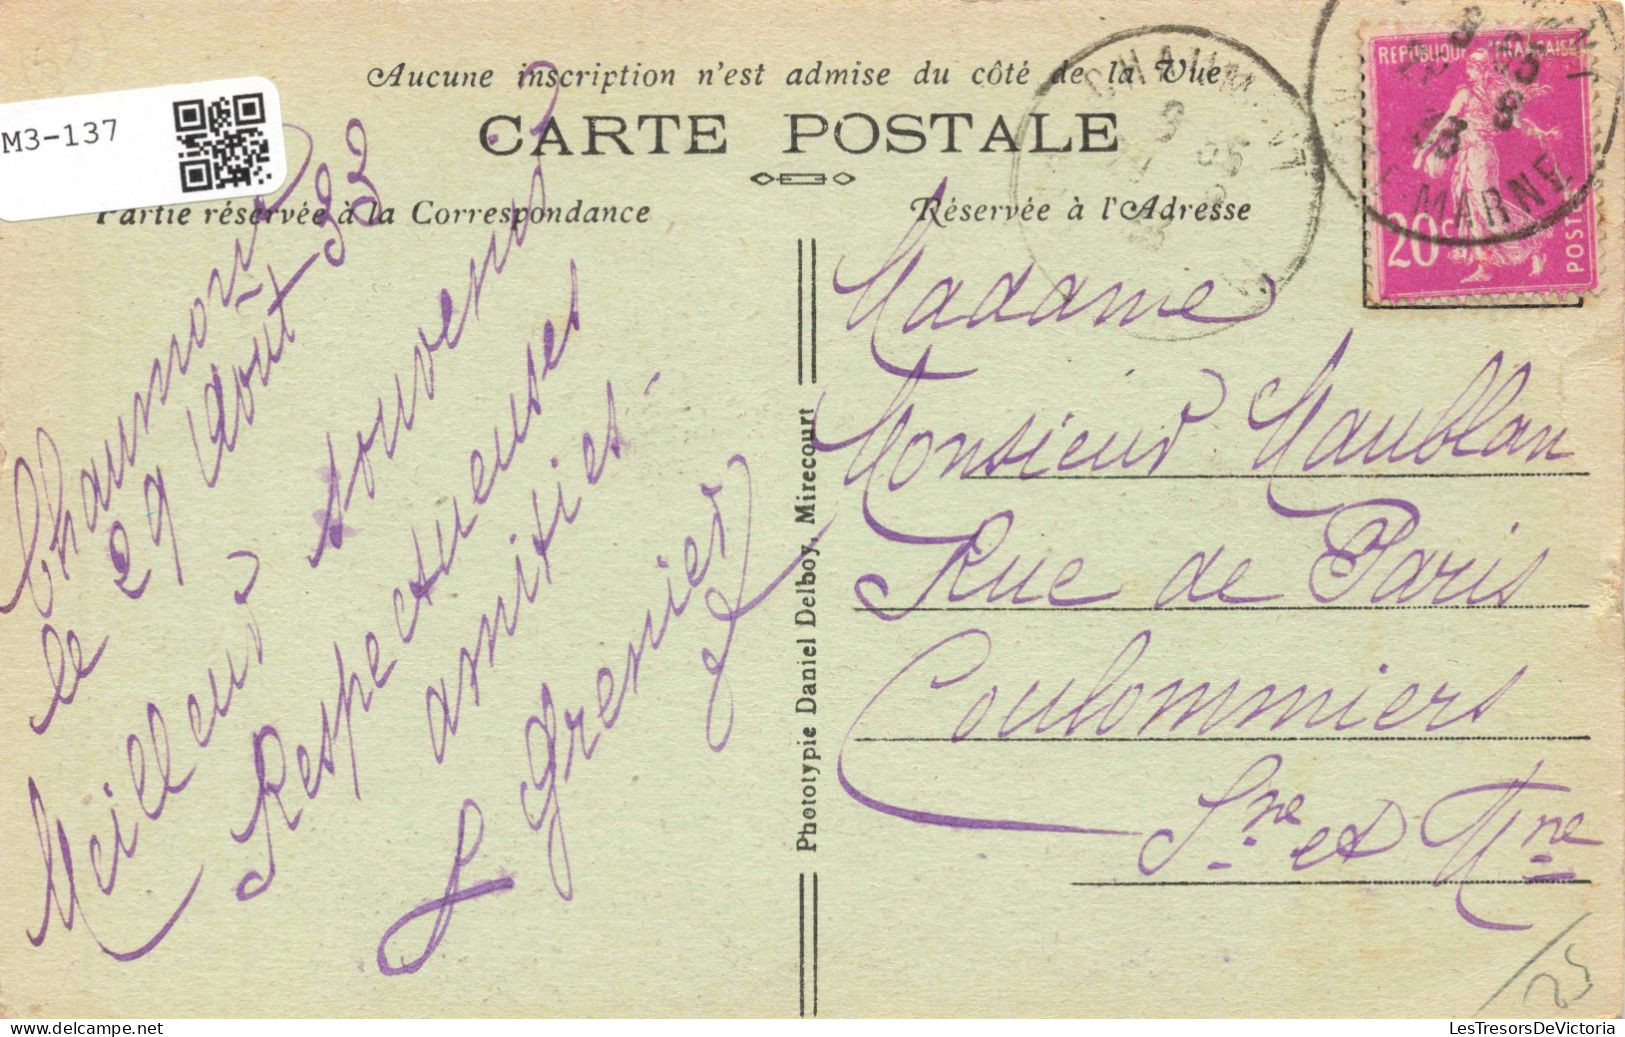 Aucune inscription n'est admise du côté de la Vue
CARTE POSTALE
M3-137
Partie réservée à la Correspondance
Réservée à l'Adresse
Chaumont
le 29 Août 32
Meilleurs souvenirs
Respectueuses
amitiés-
L Grenier
Phototypie Daniel Delboy, Mirecourt
Madame
Monsieur Maublan
Rue de Paris
Coulommiers
Sne et Mne
REPUBLIQUE FRANÇAISE
20c
POSTES
CHAUMONT
Hte MARNE
25
LesTresorsDeVictoria
www.delcampe.net